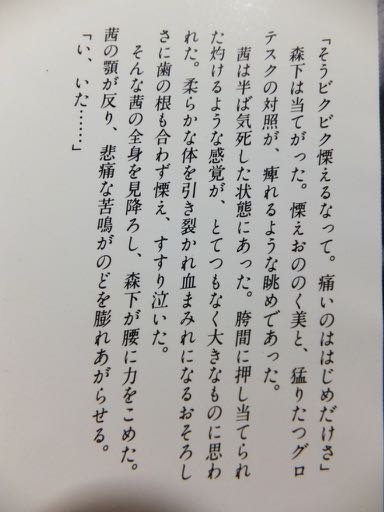 「そうビクビク慄えるなって。痛いのははじめだけさ」
森下は当てがった。慄えおののく美と、猛りたつグロ
テスクの対照が、痺れるような眺めであった。
茜は半ば気死した状態にあった。胯間に押し当てられ
た灼けるような感覚が、とてつもなく大きなものに思わ
れた。柔らかな体を引き裂かれ血まみれになるおそろし
さに歯の根も合わず慄え、すすり泣いた。
そんな茜の全身を見降ろし、森下が腰に力をこめた。
茜の顎が反り、悲痛な苦鳴がのどを膨れあがらせる。
「い、いた……」